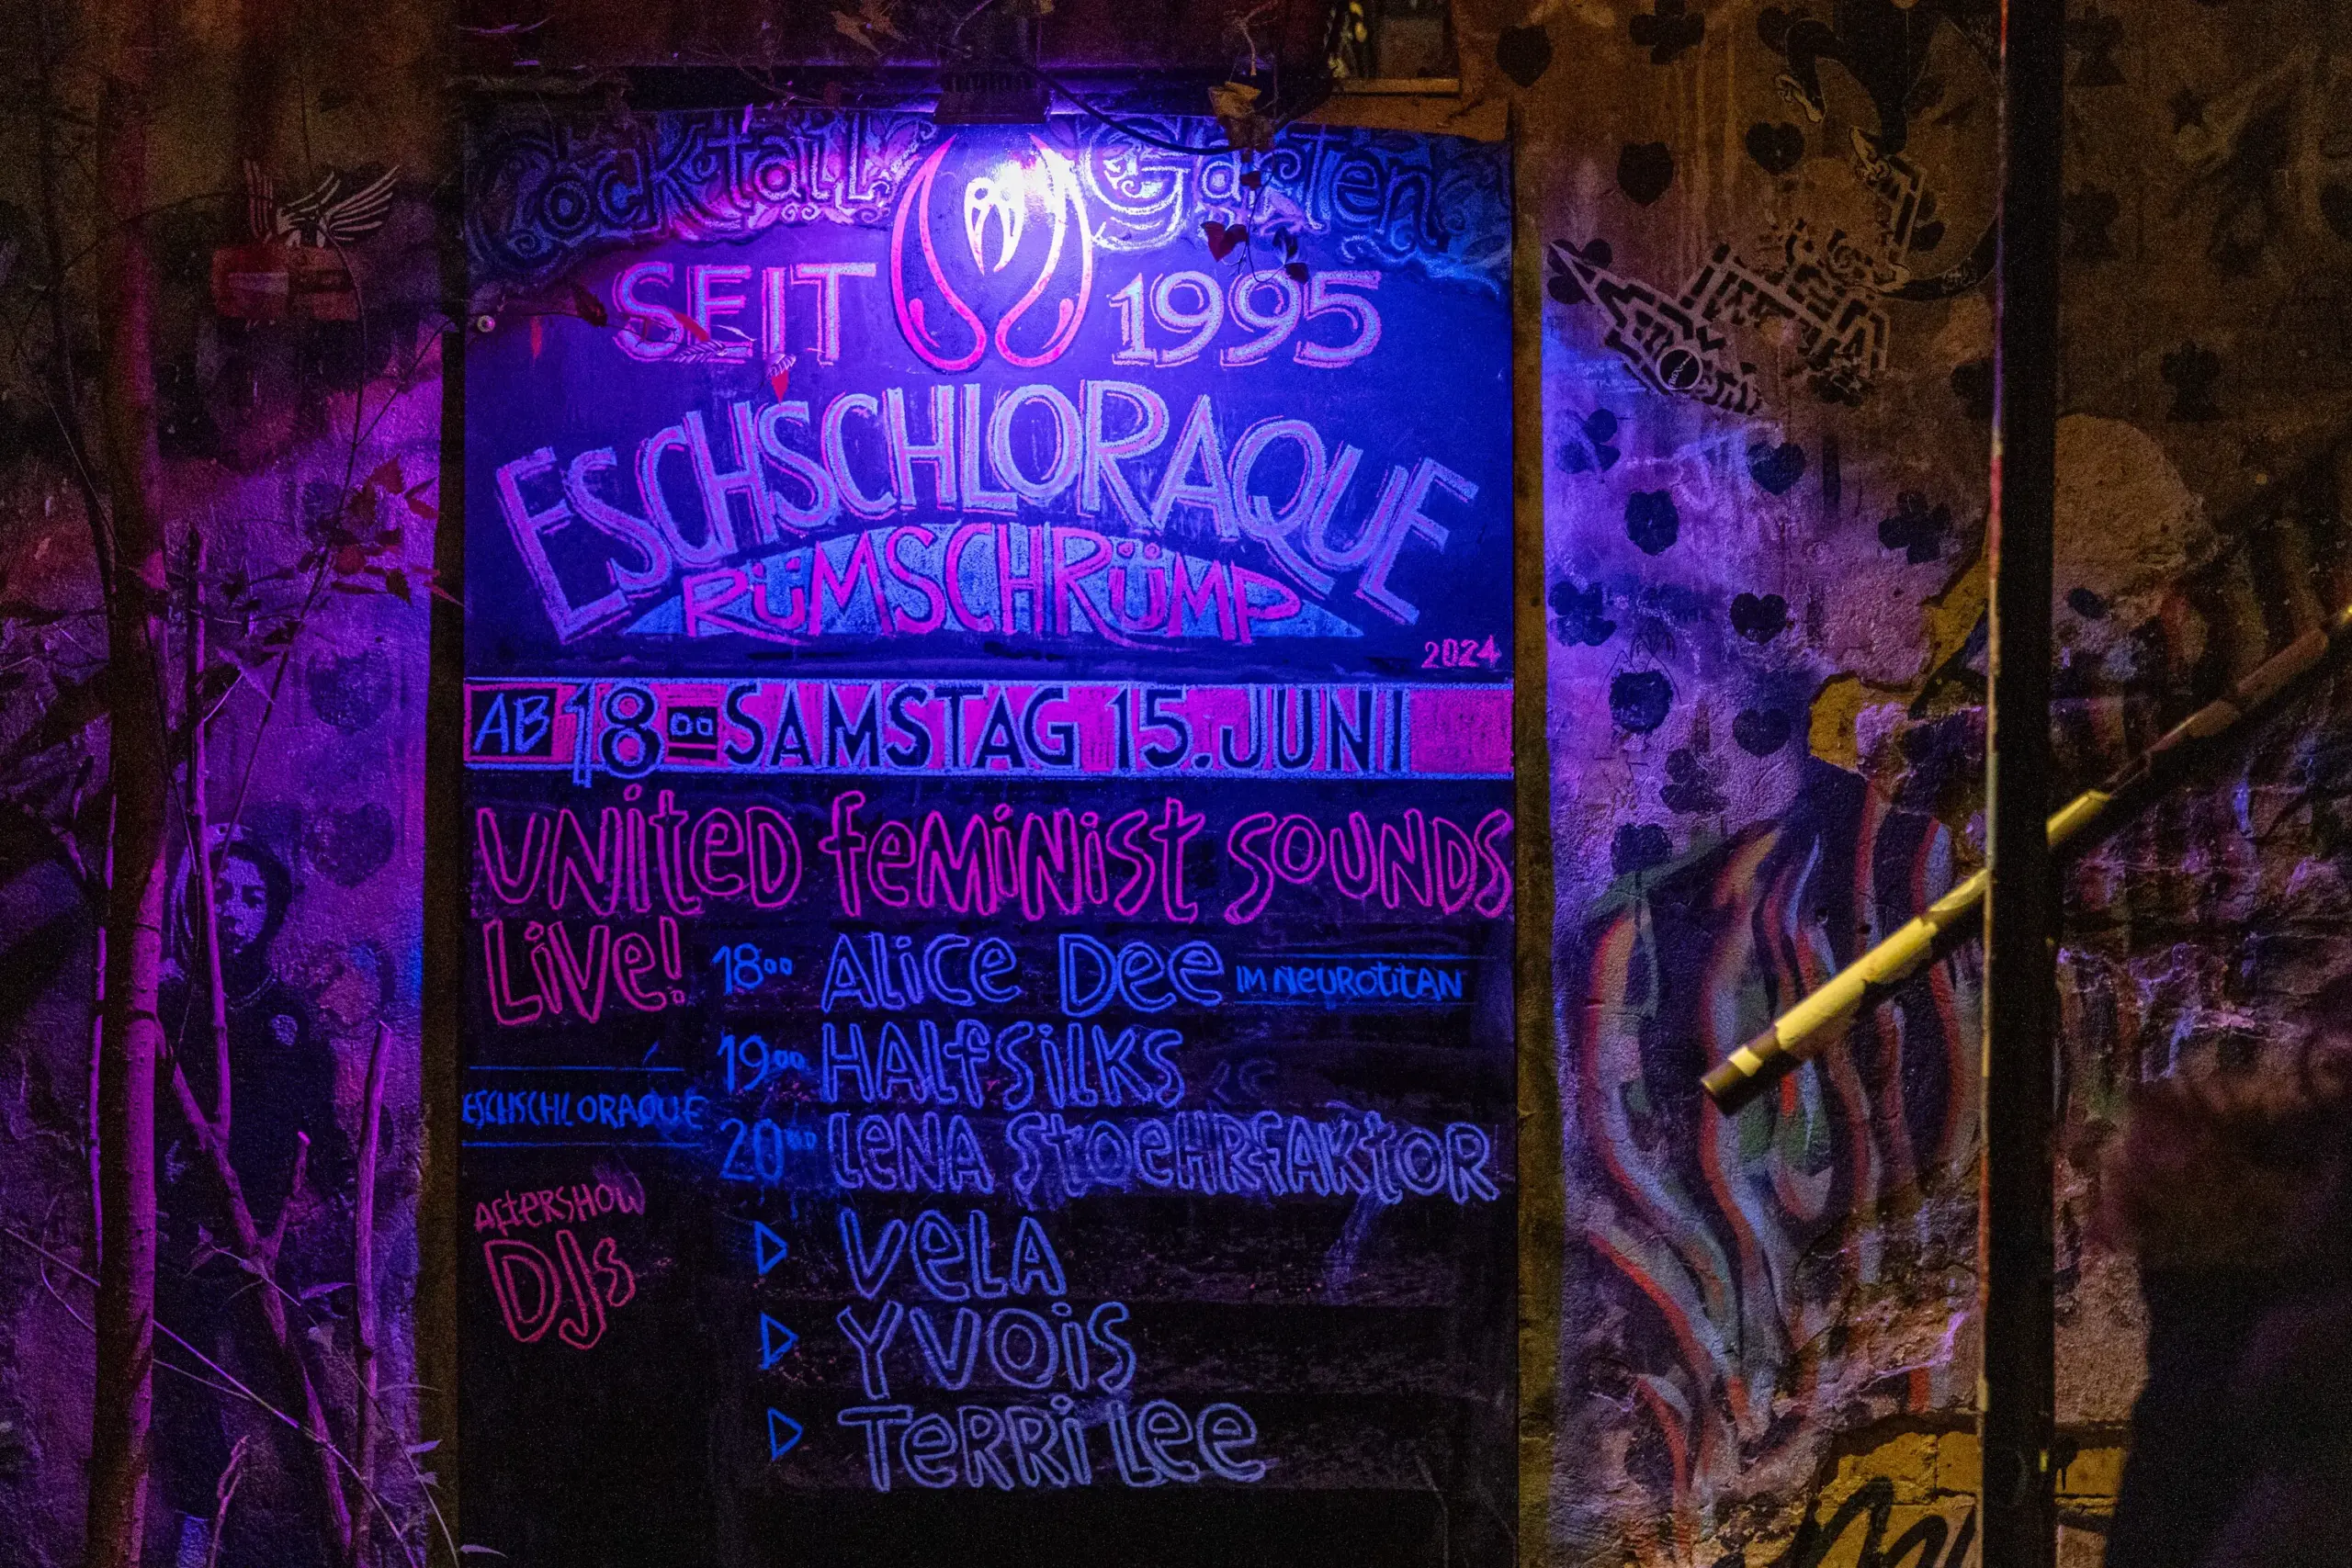 Cocktail Garten
SEIT 1995
ESCHSCHLORAQUE
RÜMSCHRÜMP
2024
AB 1800 SAMSTAG 15. JUNI
UNITED FEMINIST SOUNDS
LIVE!
1800 ALICE DEE IM NEUROTITAN
1900 HALFSILKS
ESCHSCHLORAQUE
2000 LENA STOEHRFAKTOR
AFTERSHOW
DJs
VELA
YVOIS
TERRI LEE